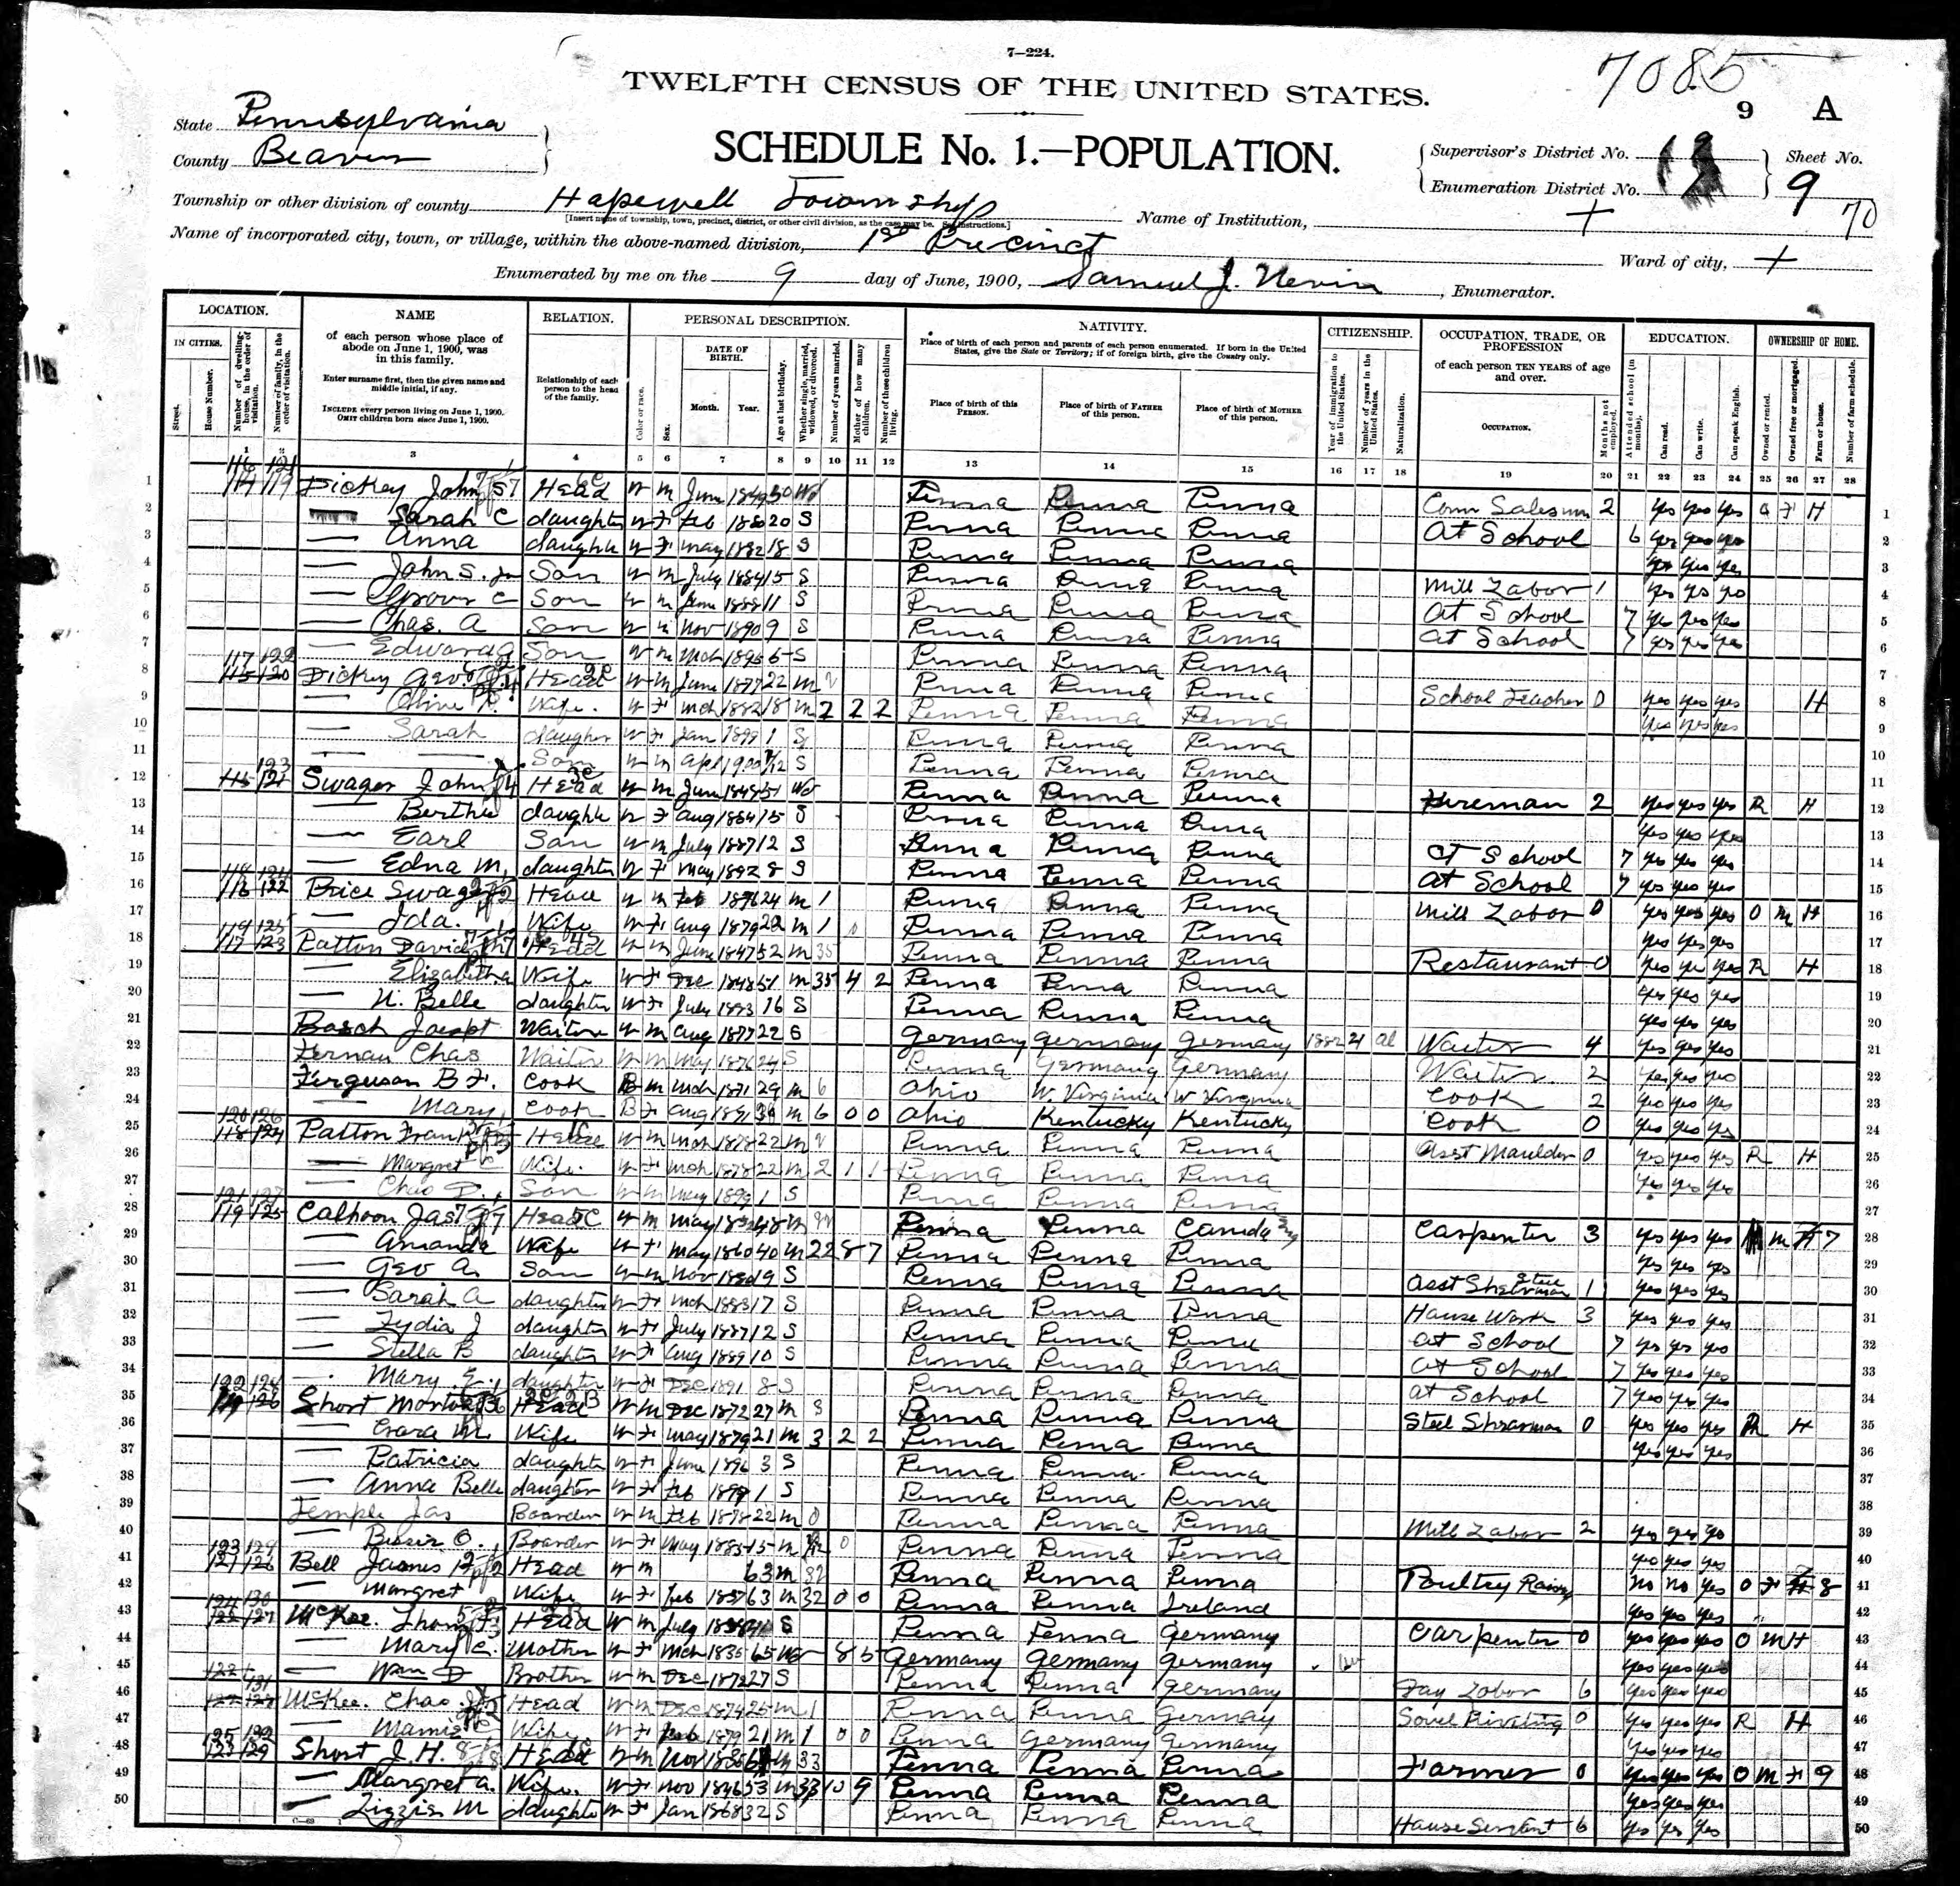 7-224.
7085
TWELFTH CENSUS OF THE UNITED STATES.
9 A
State Pennsylvania
County Beaver
SCHEDULE No. 1.—POPULATION.
Supervisor's District No. Sheet No.
Enumeration District No. 9
70
Township or other division of county Hopewell Township
[Insert name of township, town, precinct, district, or other civil division, as the case may be. See instructions.]
Name of Institution, +
Name of incorporated city, town, or village, within the above-named division, 1st Precinct
Ward of city, +
Enumerated by me on the 9 day of June, 1900, Samuel J. Nevin, Enumerator.
LOCATION. NAME RELATION. PERSONAL DESCRIPTION. NATIVITY. CITIZENSHIP. OCCUPATION, TRADE, OR PROFESSION EDUCATION. OWNERSHIP OF HOME.
IN CITIES. Street. House Number. Number of dwelling-house, in the order of visitation. Number of family, in the order of visitation.
of each person whose place of abode on June 1, 1900, was in this family.
Enter surname first, then the given name and middle initial, if any.
INCLUDE every person living on June 1, 1900. OMIT children born since June 1, 1900.
Relationship of each person to the head of the family.
Color or race. Sex. DATE OF BIRTH. Month. Year. Age at last birthday. Whether single, married, widowed, or divorced. Number of years married. Mother of how many children. Number of these children living.
Place of birth of each person and parents of each person enumerated. If born in the United States, give the State or Territory; if of foreign birth, give the Country only.
Place of birth of this PERSON. Place of birth of FATHER of this person. Place of birth of MOTHER of this person.
Year of immigration to the United States. Number of years in the United States. Naturalization.
of each person TEN YEARS of age and over.
OCCUPATION. Months not employed.
Attended school (in months). Can read. Can write. Can speak English.
Owned or rented. Owned free or mortgaged. Farm or house. Number of farm schedule.
1 2 3 4 5 6 7 8 9 10 11 12 13 14 15 16 17 18 19 20 21 22 23 24 25 26 27 28
1 Dickey John Head W M June 1849 50 Wd Penna Penna Penna Com Salesman 2 yes yes yes O F H 1
2 — Sarah C daughter W F Feb 1880 20 S Penna Penna Penna At School 6 yes yes yes 2
3 — Anna daughter W F May 1882 18 S Penna Penna Penna yes yes yes 3
4 — John S. Jr Son W M July 1884 15 S Penna Penna Penna Mill Labor 1 yes yes yes 4
5 — Grover C Son W M June 1888 11 S Penna Penna Penna At School 7 yes yes yes 5
6 — Chas. A Son W M Nov 1890 9 S Penna Penna Penna At School 7 yes yes yes 6
7 — Edward G Son W M Mch 1895 5 S Penna Penna Penna 7
8 117 122 Dickey Geo. Head W M June 1877 22 M 2 Penna Penna Penna School Teacher 0 yes yes yes H 8
9 — Olive Wife W F Mch 1882 18 M 2 2 2 Penna Penna Penna yes yes yes 9
10 — Sarah daughter W F Jan 1899 1 S Penna Penna Penna 10
11 — — Son W M Apl 1900 S Penna Penna Penna 11
12 Swager John Head W M June 1848 51 Wd Penna Penna Penna Fireman 2 yes yes yes R H 12
13 — Bertha daughter W F Aug 1884 15 S Penna Penna Penna yes yes yes 13
14 — Earl Son W M July 1887 12 S Penna Penna Penna At School 7 yes yes yes 14
15 — Edna M. daughter W F May 1892 8 S Penna Penna Penna At School 7 yes yes yes 15
16 Brice Swager Head W M Feb 1876 24 M 1 Penna Penna Penna Mill Labor 0 yes yes yes O M H 16
17 — Ida. Wife W F Aug 1879 22 M 1 0 Penna Penna Penna yes yes yes 17
18 119 125 Patton David Head W M June 1847 52 M 35 Penna Penna Penna Restaurant 0 yes yes yes R H 18
19 — Elizabeth Wife W F Dec 1848 51 M 35 4 2 Penna Penna Penna yes yes yes 19
20 — N. Belle daughter W F July 1883 16 S Penna Penna Penna yes yes yes 20
21 Bosch Joespt Waiter W M Aug 1877 22 S Germany Germany Germany 1882 21 Al Waiter 4 yes yes yes 21
22 Hernan Chas Waiter W M May 1876 24 S Penna Germany Germany Waiter 2 yes yes yes 22
23 Ferguson B F. Cook B M Mch 1871 29 M 6 Ohio W. Virginia W Virginia Cook 2 yes yes yes 23
24 — Mary, Cook B F Aug M 6 0 0 Ohio Kentucky Kentucky Cook 0 yes yes yes 24
25 120 126 Patton Frank Head W M Mch 1878 22 M 2 Penna Penna Penna Asst Moulder 0 yes yes yes R H 25
26 — Margret Wife. W F Mch 1878 22 M 2 1 1 Penna Penna Penna yes yes yes 26
27 — Chas D., Son W M May 1899 1 S Penna Penna Penna 27
28 121 127 Calhoon Jas Head W M May 48 M 22 Penna Penna Canada Eng Carpenter 3 yes yes yes M 7 28
29 — Amanda Wife W F May 1860 40 M 22 8 7 Penna Penna Penna yes yes yes 29
30 — Geo A. Son W M Nov 1880 19 S Penna Penna Penna Asst Steel Shearman 1 yes yes yes 30
31 — Sarah A daughter W F Mch 1883 17 S Penna Penna Penna House Work 3 yes yes yes 31
32 — Lydia J daughter W F July 1887 12 S Penna Penna Penna At School 7 yes yes yes 32
33 — Stella B daughter W F Aug 1889 10 S Penna Penna Penna At School 7 yes yes yes 33
34 — Mary E., daughter W F Dec 1891 8 S Penna Penna Penna at School 7 yes yes yes 34
35 Short Head W M Dec 1872 27 M 3 Penna Penna Penna Steel Shearman 0 yes yes yes R H 35
36 — M. Wife W F May 1879 21 M 3 2 2 Penna Penna Penna yes yes yes 36
37 — Patricia daughter W F June 1896 3 S Penna Penna Penna 37
38 — Anna Belle daughter W F Feb 1899 1 S Penna Penna Penna 38
39 Temple Jas Boarder W M Feb 1878 22 M 0 Penna Penna Penna Mill Labor 2 yes yes yes 39
40 — Bessie O., Boarder W F May 1885 15 M 0 Penna Penna Penna yes yes yes 40
41 123 129 Bell James Head W M 63 M 32 Penna Penna Penna Poultry Raising no no yes O F 8 41
42 — Margret Wife W F Feb 1837 63 M 32 0 0 Penna Penna Ireland yes yes yes 42
43 124 130 McKee. Thom Head W M July S Penna Penna Germany Carpenter 0 yes yes yes O M H 43
44 — Mary C. Mother W F Mch 1835 65 Wd 8 5 Germany Germany Germany yes yes yes 44
45 — Wm D Brother W M Dec 1872 27 S Penna Penna Germany Day Labor 6 yes yes yes 45
46 McKee. Chas Head W M Dec 1874 25 M 1 Penna Penna Germany 0 yes yes yes R H 46
47 — Mamie Wife W F Feb 1879 21 M 1 0 0 Penna Germany Germany yes yes yes 47
48 Short J. H. Head W M Nov M 33 Penna Penna Penna Farmer 0 yes yes yes O M F 9 48
49 — Margret A. Wife. W F Nov 1846 53 M 33 10 9 Penna Penna Penna yes yes yes 49
50 — Lizzie M daughter W F Jan 1868 32 S Penna Penna Penna House Servant 6 yes yes yes 50